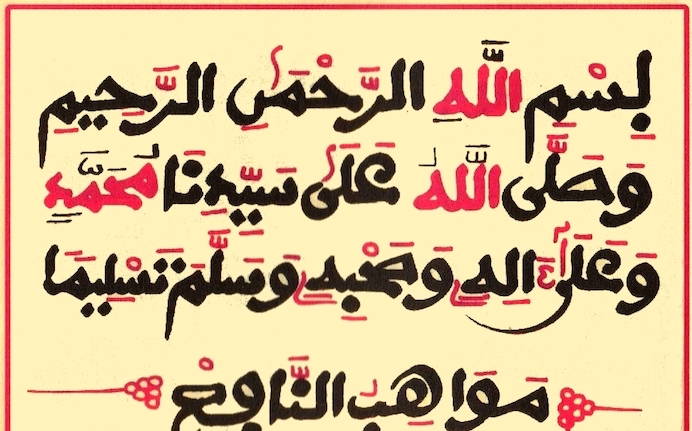 بِسْمِ اللَّهِ الرَّحْمَٰنِ الرَّحِيمِ
وَصَلَّى اللَّهُ عَلَى سَيِّدِنَا مُحَمَّدٍ
وَعَلَى آلِهِ وَصَحْبِهِ وَسَلَّمَ تَسْلِيمًا
مَوَاهِبُ النَّافِعْ